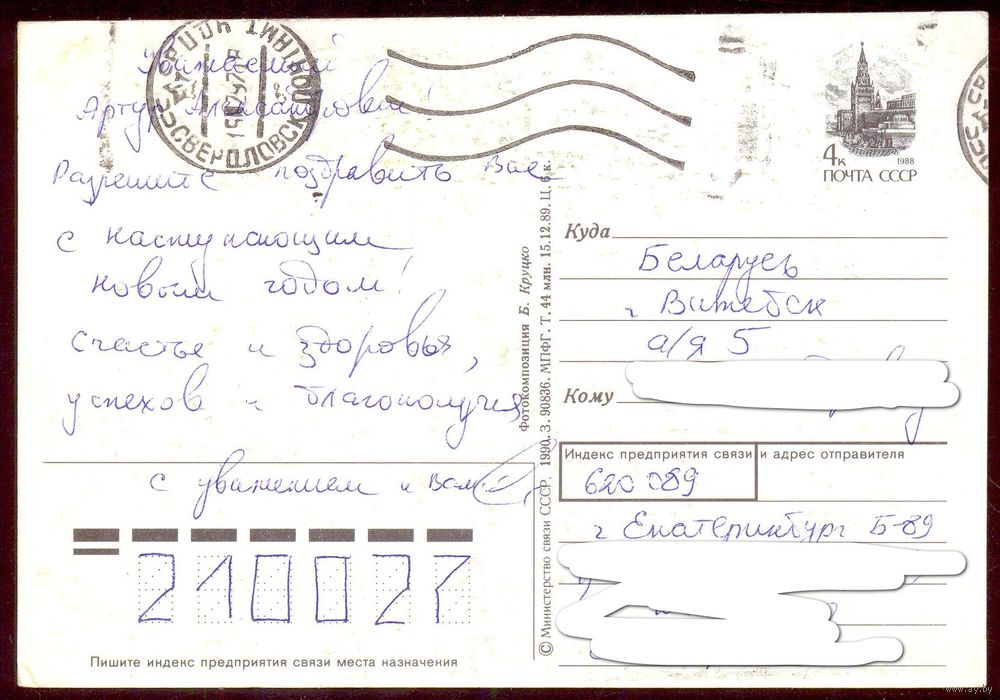 Уважаемый
Артур Александрович!
Разрешите поздравить Вас
с наступающим
новым годом!
Счастье и здоровья,
успехов и благополучия
с уважением к Вам
210027
Пишите индекс предприятия связи места назначения
СВЕРДЛОВСК ПОЧТАМТ
4к 1988
ПОЧТА СССР
Куда
Беларусь
г Витебск
а/я 5
Кому
Индекс предприятия связи и адрес отправителя
620089
г Екатеринбург Б-89
© Министерство связи СССР, 1990. З. 90836. МПФГ. Т. 44 млн. 15.12.89. Ц. 6 к.
Фотокомпозиция Б. Круцко
www.ay.by